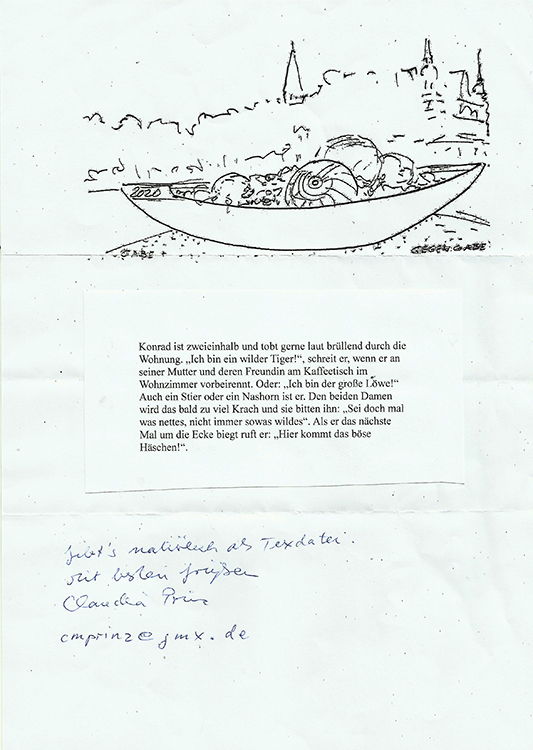 2020
GABE
GEGENGABE
Konrad ist zweieinhalb und tobt gerne laut brüllend durch die
Wohnung. „Ich bin ein wilder Tiger!", schreit er, wenn er an
seiner Mutter und deren Freundin am Kaffeetisch im
Wohnzimmer vorbeirennt. Oder: „Ich bin der große Löwe!"
Auch ein Stier oder ein Nashorn ist er. Den beiden Damen
wird das bald zu viel Krach und sie bitten ihn: „Sei doch mal
was nettes, nicht immer sowas wildes". Als er das nächste
Mal um die Ecke biegt ruft er: „Hier kommt das böse
Häschen!".
gibt's natürlich als Texdatei.
Mit besten Grüßen
Claudia Prinz
cmprinz@gmx.de